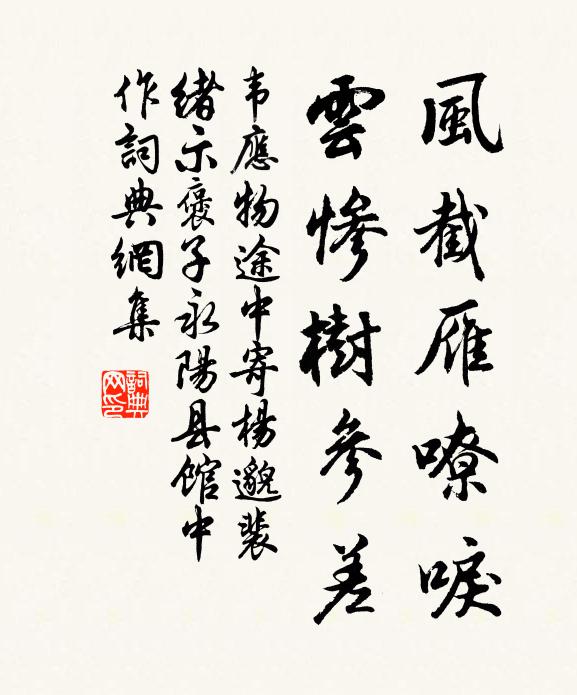 風截雁嘹唳
雲慘樹參差
韦應物途中寄楊邈裴
緒示褒子永陽县館中
作詞典網集
詞典网印